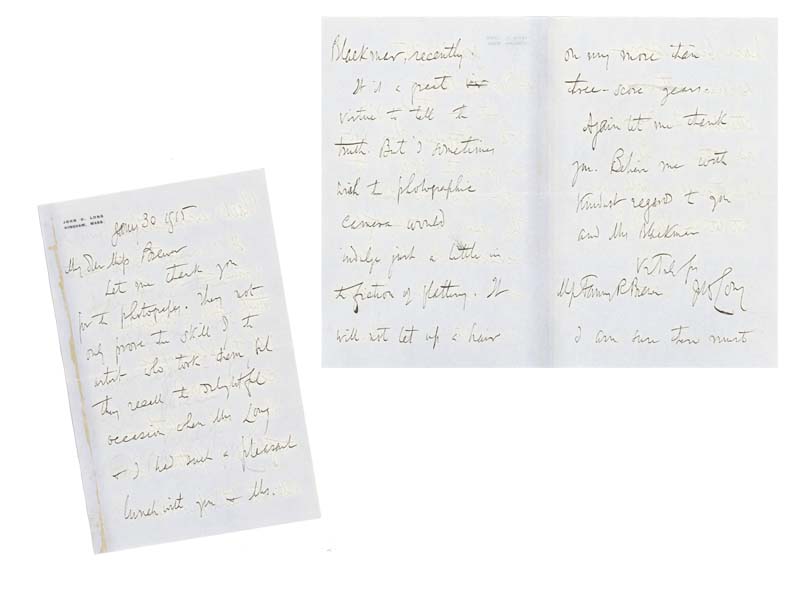 JOHN D. LONG
HINGHAM, MASS.
Jany 30 1915
My Dear Miss Brown
Let me thank you
for the photographs. They not
only prove the skill of the
artist who took them but
they recall the delightful
occasion when Mrs Long
+ I had such a pleasant
lunch with you + Mrs.
Blackmer, recently.
It is a great
virtue to tell the
truth. But I sometimes
wish the photographic
camera would
indulge just a little in
the fiction of flattery. It
will not let up a hair
on my more than
three-score years.
Again let me thank
you. Believe me with
kindest regard to you
and Mrs Blackmer
Very truly yrs
Miss Fanny R Brown J D Long
I am sure there must